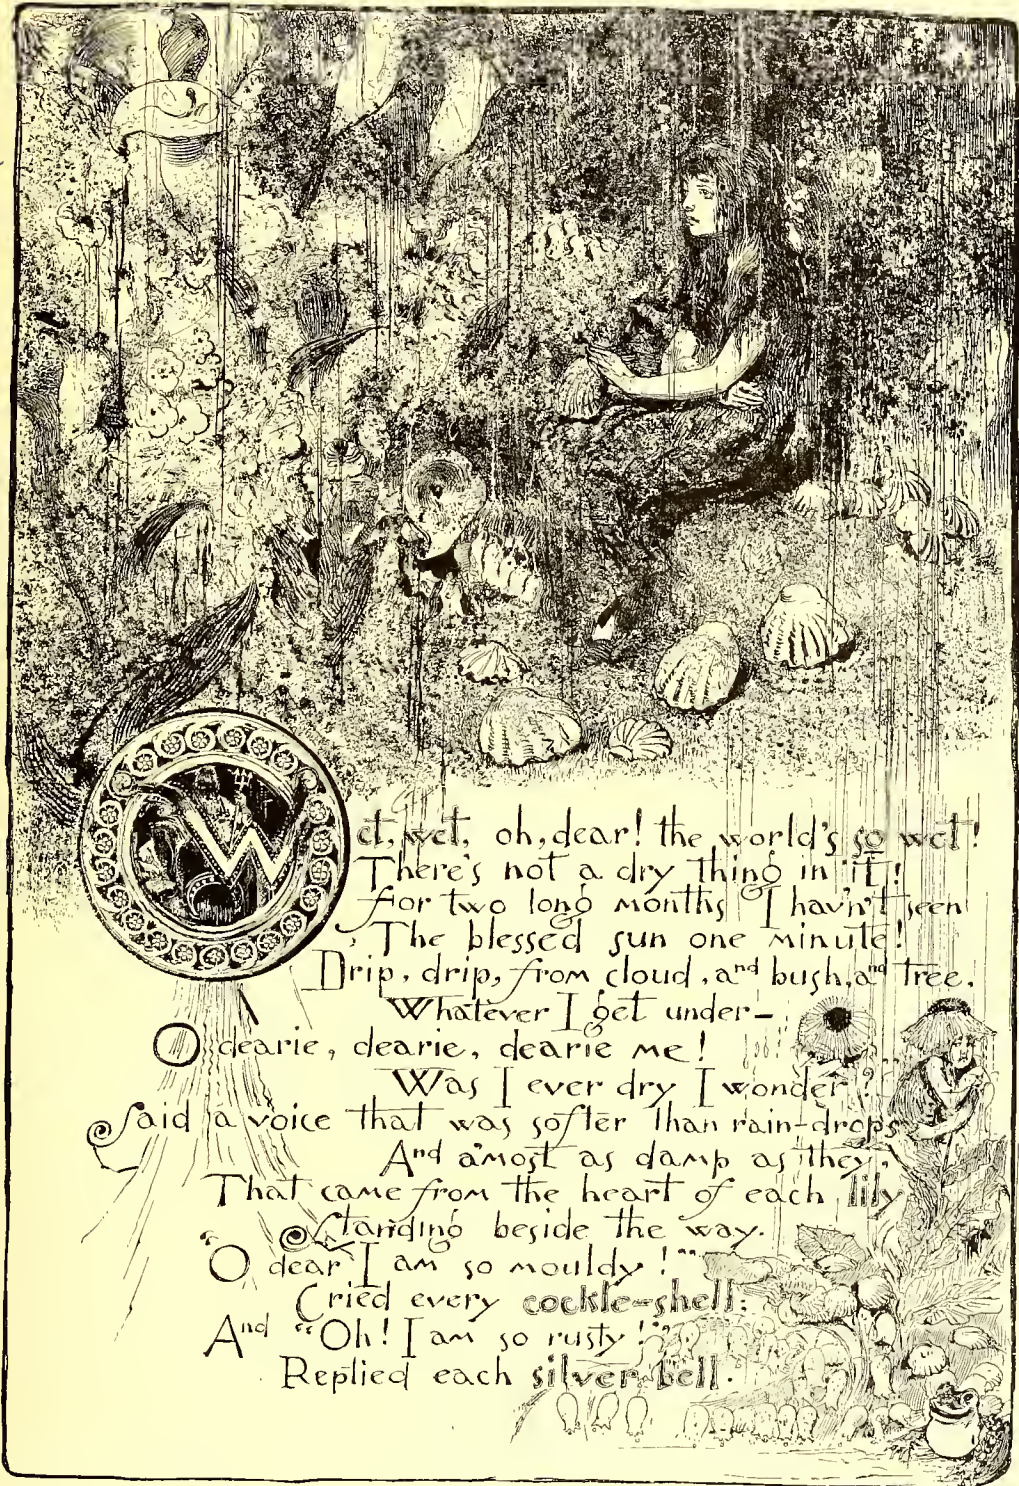 Wet, wet, oh, dear! the world's so wet!
There's not a dry thing in it!
For two long months I havn't seen
The blessed sun one minute!
Drip, drip, from cloud, and bush, and tree,
Whatever I get under—
O dearie, dearie, dearie me!
Was I ever dry I wonder?
Said a voice that was softer than rain-drops
And a'most as damp as they,
That came from the heart of each lily
Standing beside the way.
"O dear I am so mouldy!"
Cried every cockle-shell:
And "Oh! I am so rusty!"
Replied each silver bell.